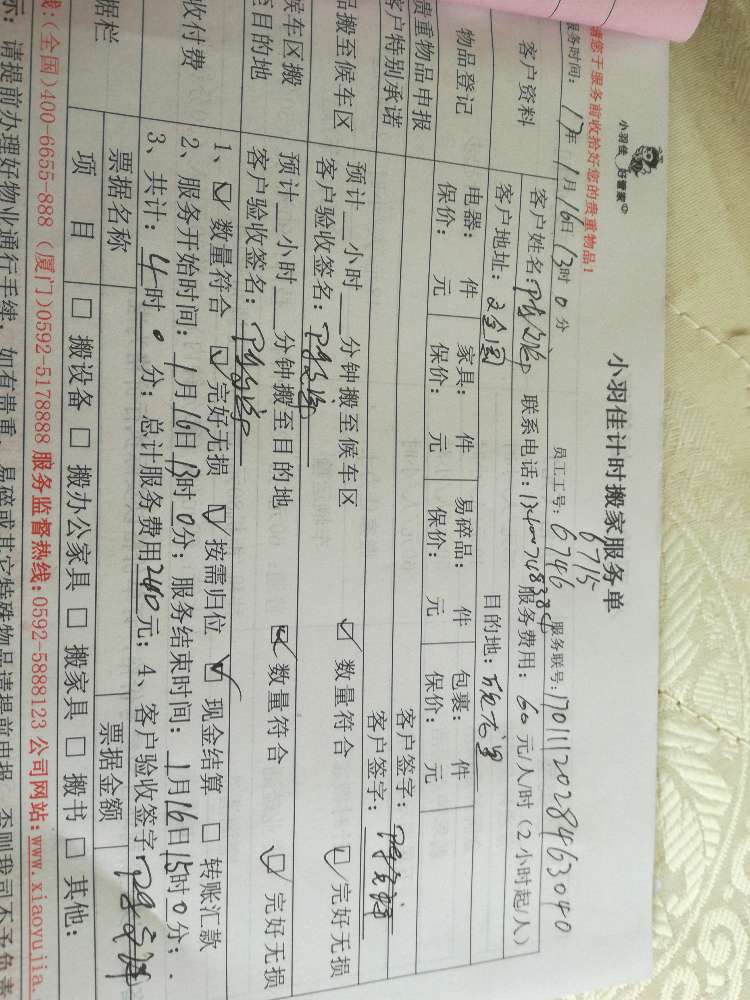 小羽佳 好管家
小羽佳计时搬家服务单
请您于服务前收拾好您的贵重物品!
员工工号: 6715
6746
服务联号: 1701112028463040
服务时间: 17年 1月 16日 13时 0分
客户资料
客户姓名: 联系电话: 服务费用: 60元/人/时(2小时起/人)
客户地址: 文金园 目的地:
物品登记
电器: 件 家具: 件 易碎品: 件 包裹: 件
保价: 元 保价: 元 保价: 元 保价: 元
贵重物品申报 客户签字:
客户特别承诺 客户签字:
品搬至候车区
预计__小时___分钟搬至候车区 ☑ 数量符合 ☑ 完好无损
客户验收签名:
候车区搬
至目的地
预计__小时___分钟搬至目的地 ☑ 数量符合 ☑ 完好无损
客户验收签名:
收付费
1、☑ 数量符合 ☑ 完好无损 ☑ 按需归位 ☑ 现金结算 □ 转账汇款
2、服务开始时间: 1月16日13时0分; 服务结束时间: 1月16日15时0分;
3、共计: 4时 0分; 总计服务费用240元; 4、客户验收签字
据栏
票据名称 票据金额
项 目 □ 搬设备 □ 搬办公家具 □ 搬家具 □ 搬书 □ 其他:
线:(全国)400-6655-888 (厦门)0592-5178888 服务监督热线:0592-5888123 公司网站:www.xiaoyujia.
示: 请提前办理好物业通行手续, 如有贵重、易碎或其它特殊物品请提前申报, 否则我司不予负责